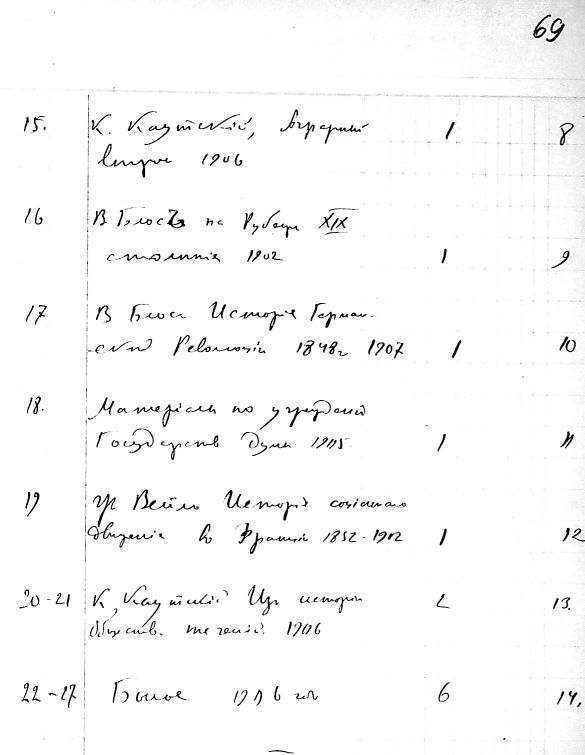 69
15. К. Каутскій, Аграрный 1 8
вопрос 1906
16 В Блосъ на Рубеже XIX
столѣтія 1902 1 9
17 В Блос Исторія Герман-
ской Революціи 1848г 1907 1 10
18. Матеріалы по учрежденію
Государств Думы 1905 1 11
19 Вейль Исторія соціальнаго
движенія во Франціи 1852-1902 1 12
20-21 К. Каутскій Из исторіи 2 13.
Обществ. теченій. 1906
22-27 Былое 1906 г. 6 14.